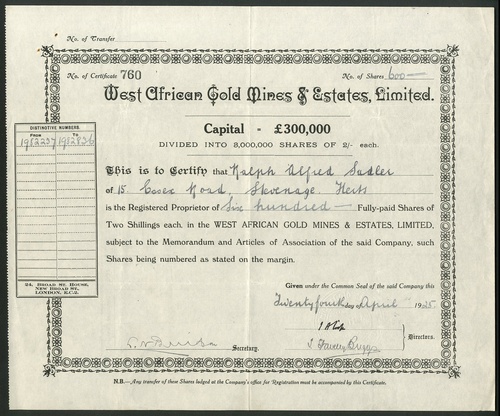 No. of Transfer
No. of Certificate 760
No. of Shares 600
West African Gold Mines & Estates, Limited.
Capital - £300,000
DIVIDED INTO 3,000,000 SHARES OF 2/- each.
DISTINCTIVE NUMBERS.
FROM TO
1982237 1982836
24, BROAD ST. HOUSE,
NEW BROAD ST.,
LONDON, E.C.2.
This is to Certify that Ralph Alfred Sadler
of 15, Essex Road, Stevenage, Herts
is the Registered Proprietor of Six hundred Fully-paid Shares of
Two Shillings each, in the WEST AFRICAN GOLD MINES & ESTATES, LIMITED,
subject to the Memorandum and Articles of Association of the said Company, such
Shares being numbered as stated on the margin.
Given under the Common Seal of the said Company this
Twenty fourth day of April 1925
Directors.
Secretary.
N.B.—Any transfer of these Shares lodged at the Company's office for Registration must be accompanied by this Certificate.